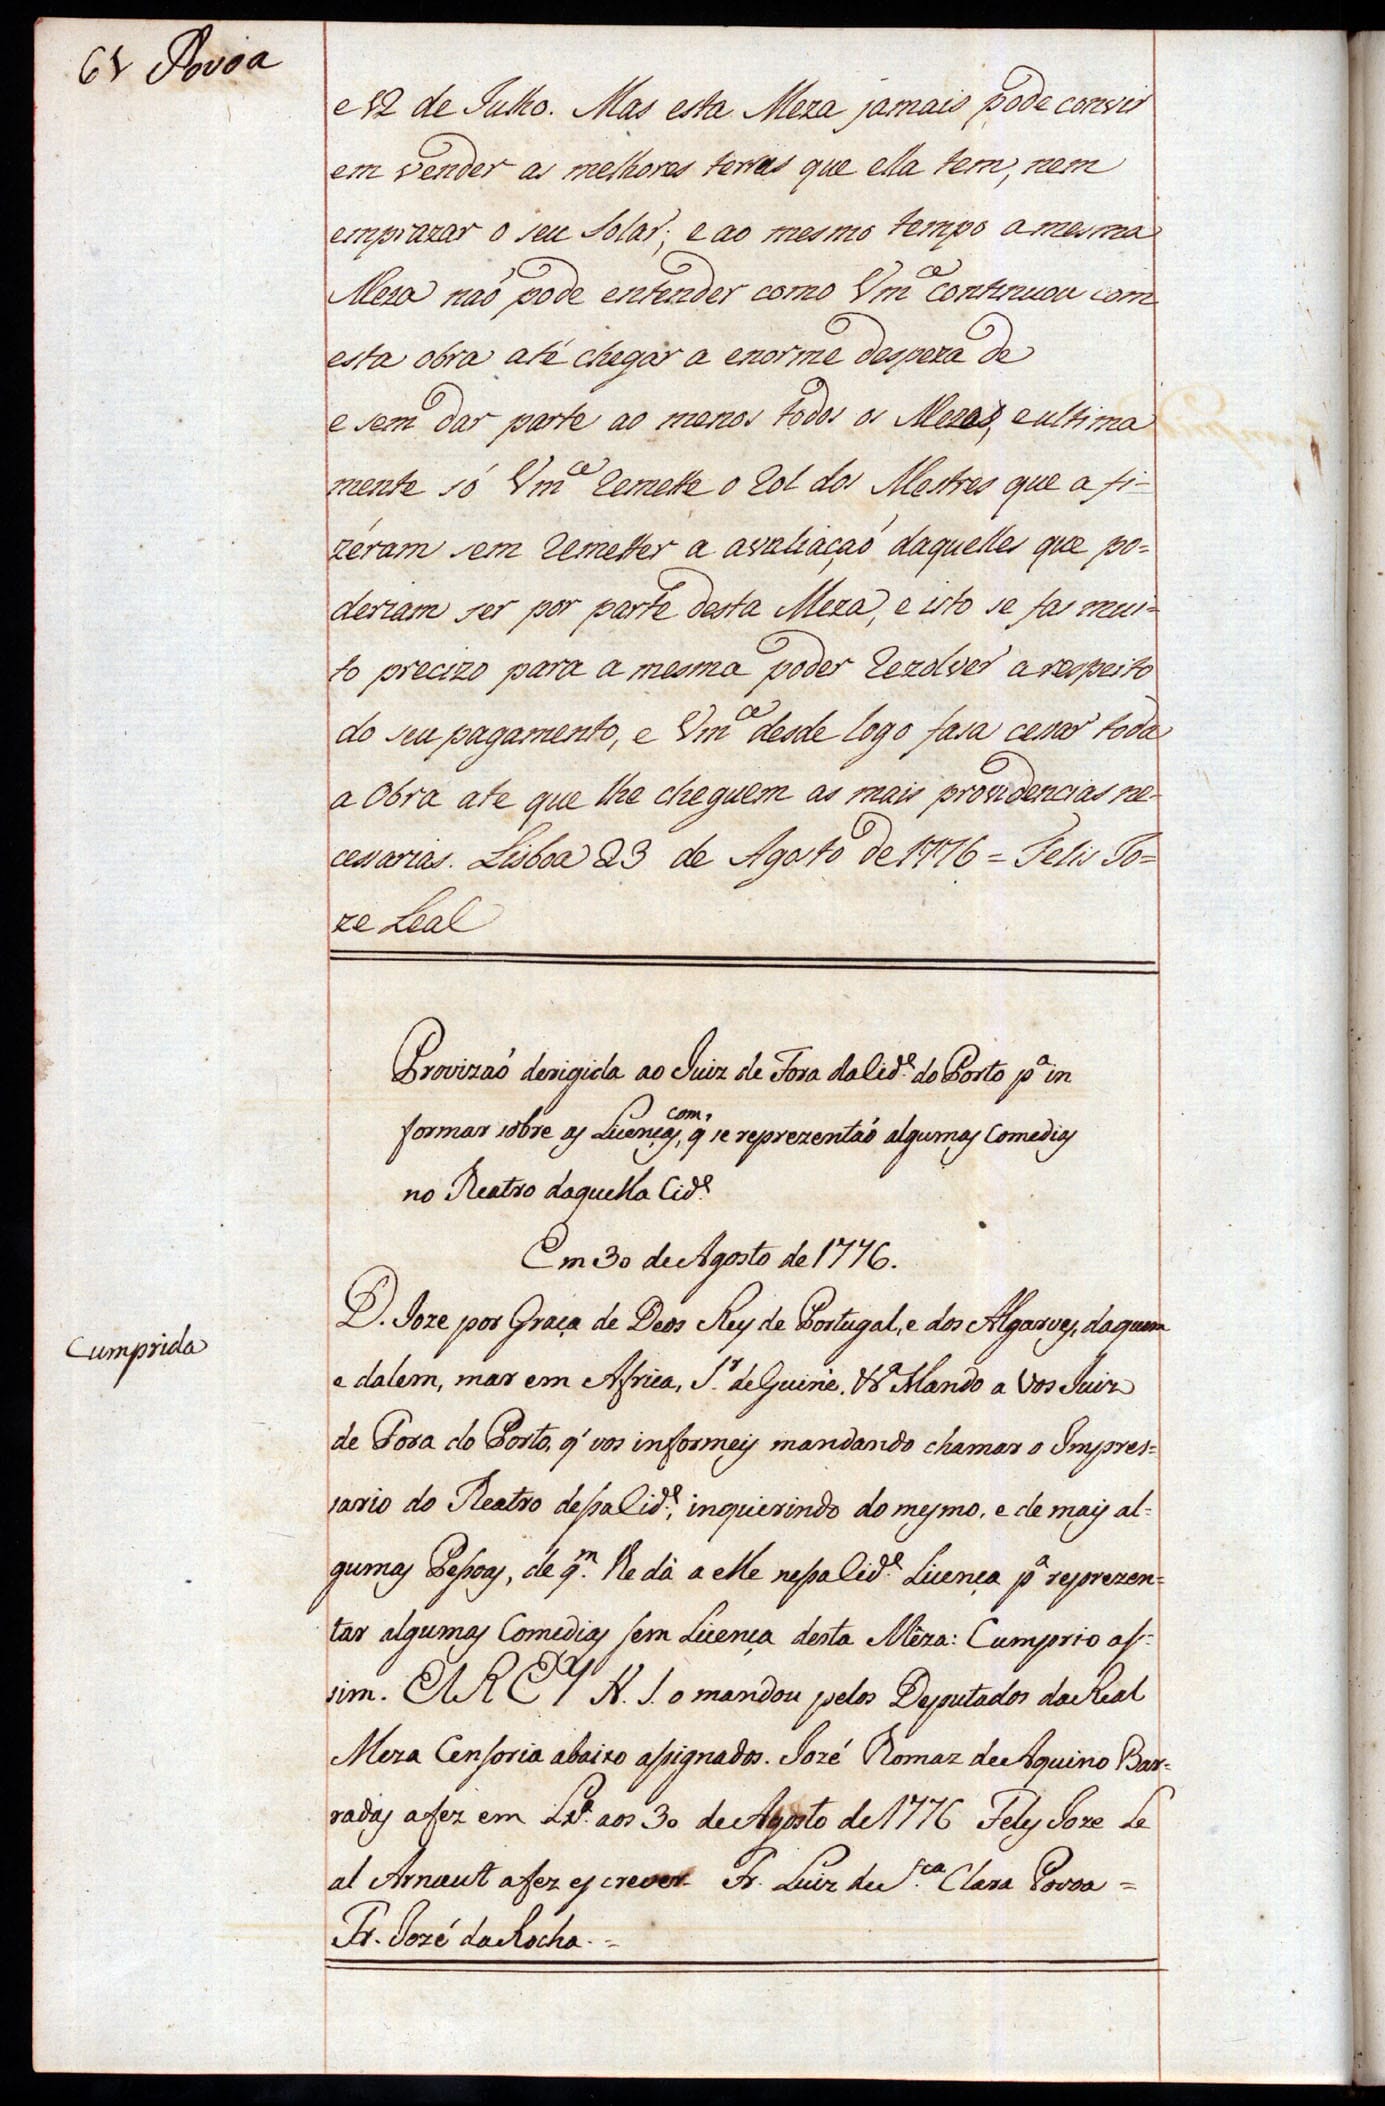 68 Povoa
e 12 de Julho. Mas esta Meza jamais pode convir
em vender as melhores terras que ella tem, nem
emprazar o seu Solar; e ao mesmo tempo a mesma
Meza naõ pode entender como Vmce continuou com
esta obra até chegar a enorme despeza de
e sem dar parte ao menos todos os Mezes, e ultima
mente só Vmce Remette o Rol dos Mestres que a fi=
zéram sem Remetter a avaliaçaõ daquelles que po=
deriam ser por parte desta Meza, e isto se fas mui=
to precizo para a mesma poder Rezolver a respeito
do seu pagamento, e Vmce desde logo fasa cessar toda
a Obra ate que lhe cheguem as mais providencias ne=
cessarias. Lisboa 23 de Agosto de 1776 = Felis Jo=
ze Leal
Provizaõ derigida ao Juiz de Fora da Cide. do Porto pa in
formar sobre as Licenças, com, q̃ se reprezentaõ algumas Comedias
no Theatro daquella Cide.
Em 30 de Agosto de 1776.
Cumprida
D. Joze por Graça de Deos Rey de Portugal, e dos Algarves, daquem
e dalem, mar em Africa, Sr. de Guiné. &a Mando a Vos Juiz
de Fora do Porto, q̃ vos informeis mandando chamar o Impres=
sario do Theatro dessa Cide., inquerindo do mesmo, e de mais al=
gumas Pessoas, de qm. he dá a elle nessa Cide. Licença pa reprezen=
tar algumas Comedias sem Licença desta Mêza: Cumprio as=
sim. ElREY N. S. o mandou pelos Deputados da Real
Meza Censoria abaixo assignados. Jozé Thomaz de Aquino Bar=
radas a fez em Lxa. aos 30 de Agosto de 1776 Felis Joze Le
al Arnaut a fez escrever. Fr. Luiz de Sta. Clara Povoa =
Fr. Jozé da Rocha. =